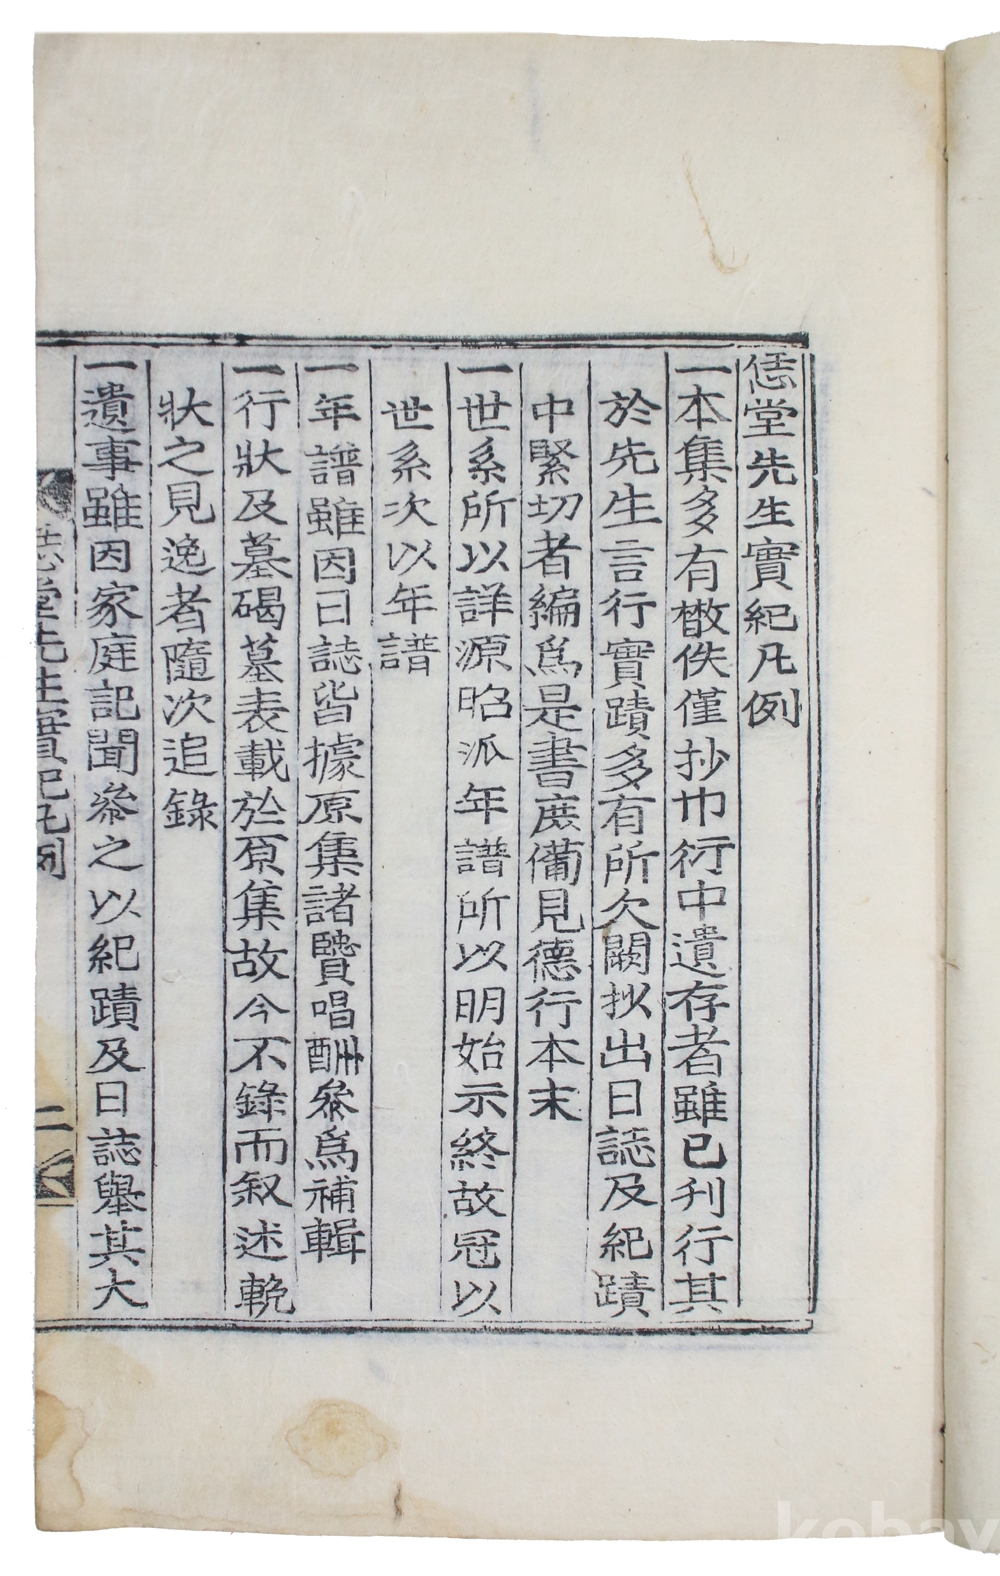 恁堂先生實紀凡例
一本集多有散佚僅抄巾衍中遺存者雖已刊行其
於先生言行實蹟多有所欠闕抄出日誌及紀蹟
中緊切者編爲是書庶備見德行本末
一世系所以詳源昭派年譜所以明始示終故冠以
世系次以年譜
一年譜雖因日誌皆據原集諸賢唱酬叅爲補輯
一行狀及墓碣墓表載於原集故今不錄而叙述輓
狀之見逸者隨次追錄
一遺事雖因家庭記聞叅之以紀蹟及日誌舉其大
恁堂先生實紀凡例
二
kobay